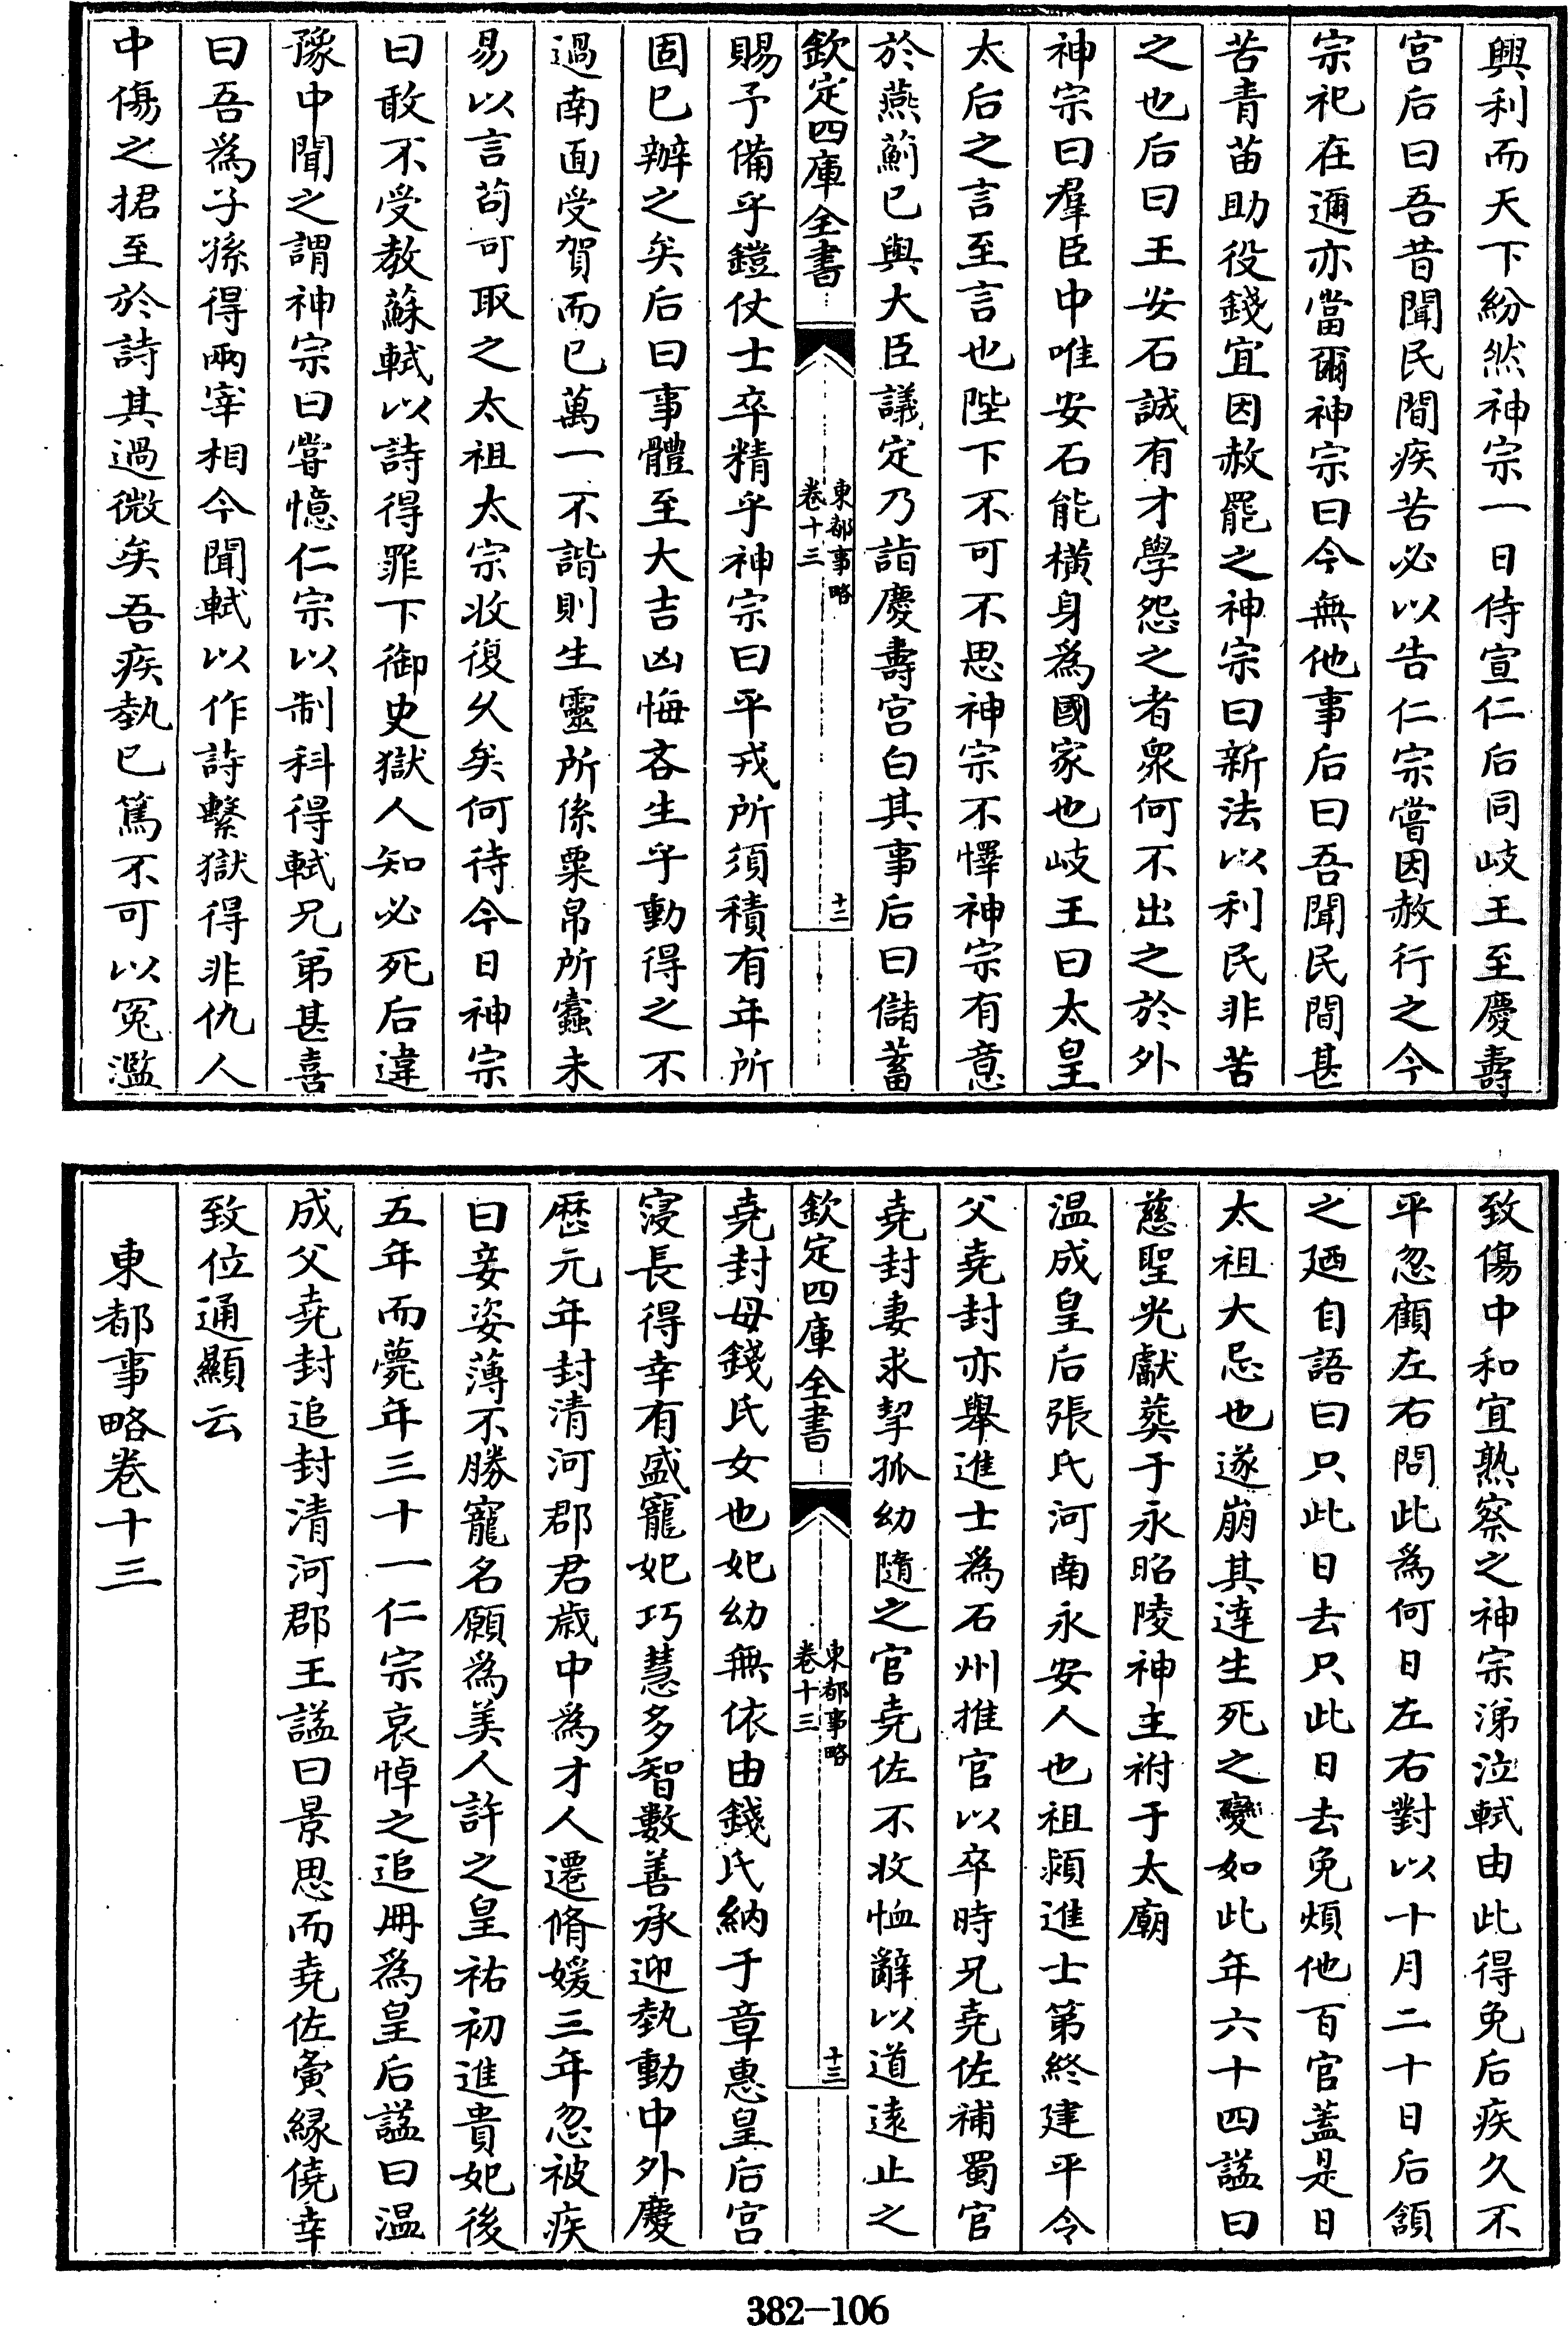 興利而天下紛然神宗一日侍宣仁后同岐王至慶壽
宫后曰吾昔聞民間疾苦必以告仁宗嘗因赦行之今
宗祀在邇亦當爾神宗曰今無他事后曰吾聞民間甚
苦青苗助役錢宜因赦罷之神宗曰新法以利民非苦
之也后曰王安石誠有才學怨之者衆何不出之於外
神宗曰羣臣中唯安石能横身為國家也岐王曰太皇
太后之言至言也陛下不可不思神宗不懌神宗有意
於燕薊已與大臣議定乃詣慶壽宫白其事后曰儲蓄
欽定四庫全書
東都事略
卷十三
十二
賜予備乎鎧仗士卒精乎神宗曰平戎所須積有年所
固已辦之矣后曰事體至大吉凶悔吝生乎動得之不
過南面受賀而已萬一不諧則生靈所係粟帛所蠧未
易以言苟可取之太祖太宗收復久矣何待今日神宗
曰敢不受教蘇軾以詩得罪下御史獄人知必死后違
豫中聞之謂神宗曰嘗憶仁宗以制科得軾兄弟甚喜
曰吾為子孫得兩宰相今聞軾以作詩繫獄得非仇人
中傷之捃至於詩其過微矣吾疾埶已篤不可以冤濫
致傷中和宜熟察之神宗涕泣軾由此得免后疾久不
平忽顧左右問此為何日左右對以十月二十日后頷
之廼自語曰只此日去只此日去免煩他百官蓋是日
太祖大忌也遂崩其達生死之變如此年六十四諡曰
慈聖光獻葬于永昭陵神主祔于太廟
温成皇后張氏河南永安人也祖潁進士第終建平令
父堯封亦舉進士為石州推官以卒時兄堯佐補蜀官
堯封妻求挈孤幼隨之官堯佐不收恤辭以道遠止之
欽定四庫全書
東都事略
卷十三
十三
堯封母錢氏女也妃幼無依由錢氏納于章惠皇后宫
寖長得幸有盛寵妃巧慧多智數善承迎埶動中外慶
歷元年封清河郡君歲中為才人遷脩媛三年忽被疾
曰妾姿薄不勝寵名願為美人許之皇祐初進貴妃後
五年而薨年三十一仁宗哀悼之追冊為皇后諡曰温
成父堯封追封清河郡王諡曰景思而堯佐夤縁僥幸
致位通顯云
東都事略卷十三
382-106